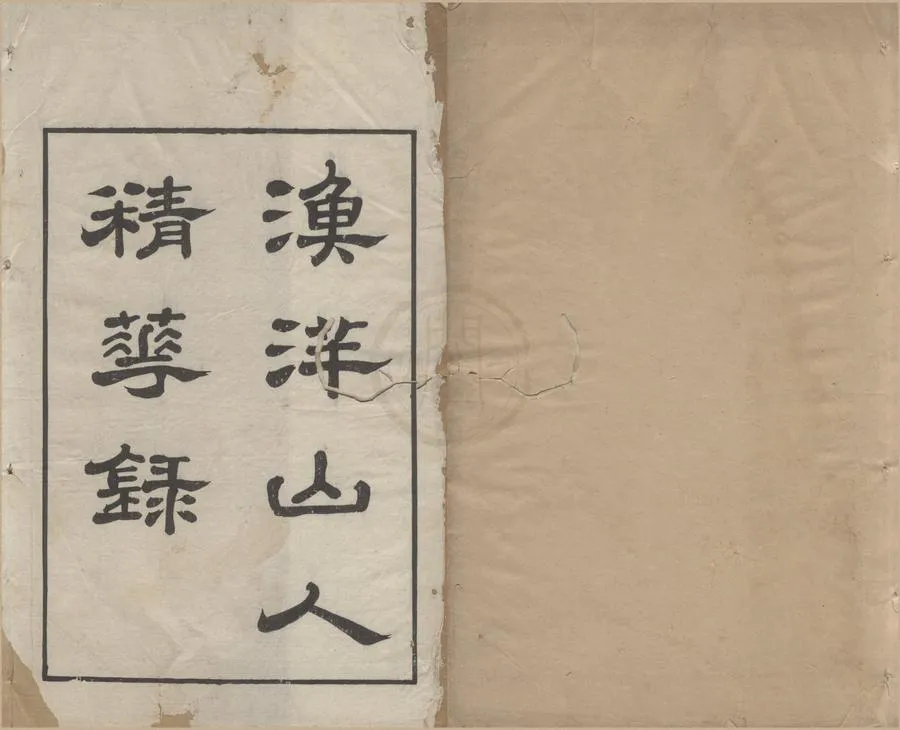 漁洋山人
精華録